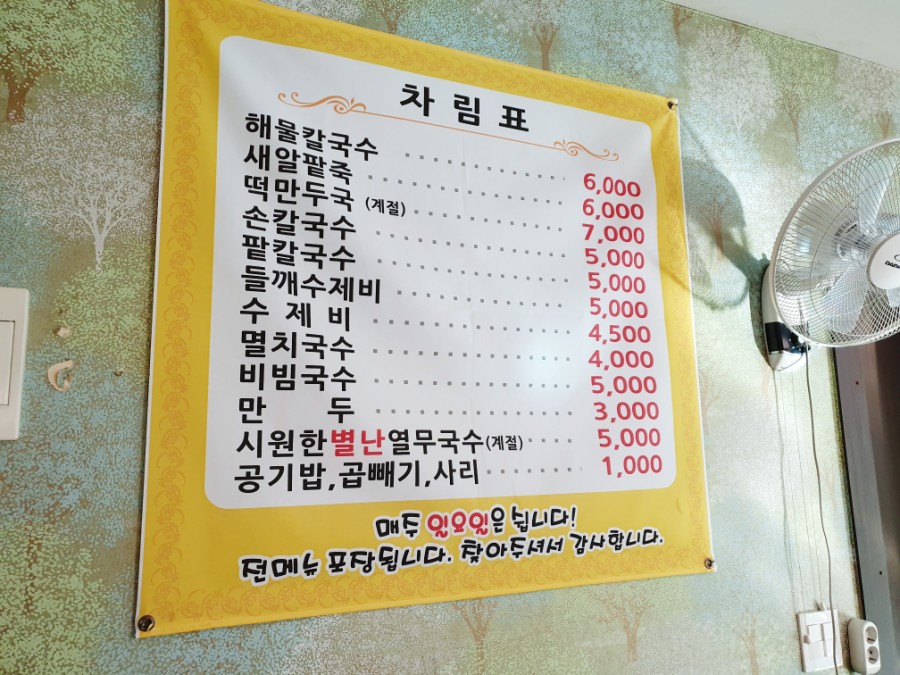 차림표
해물칼국수 6,000
새알팥죽 6,000
떡만두국 (계절) 7,000
손칼국수 5,000
팥칼국수 5,000
들깨수제비 5,000
수제비 4,500
멸치국수 4,000
비빔국수 5,000
만두 3,000
시원한별난열무국수(계절) 5,000
공기밥,곱빼기,사리 1,000
매주 일요일은 쉽니다!
전메뉴 포장됩니다. 찾아주셔서 감사합니다.